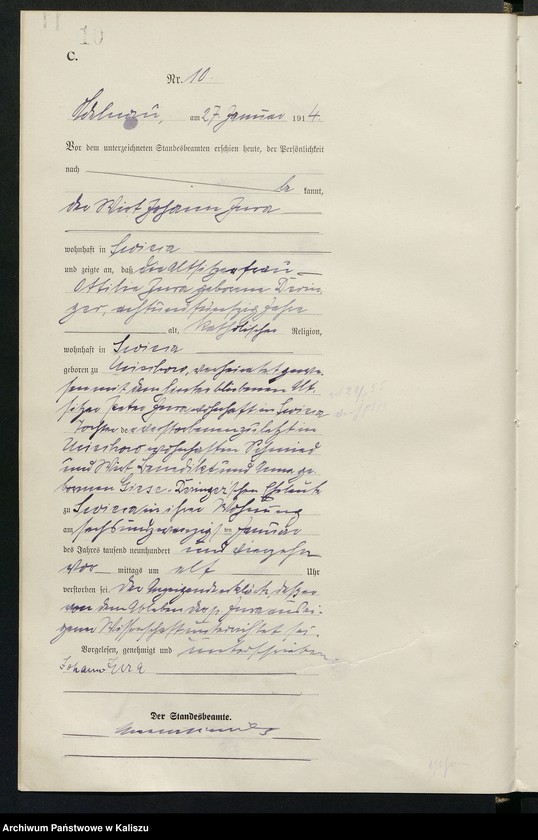 10
C.
Nr. 10.
Adelnau, am 27 Januar 1914.
Vor dem unterzeichneten Standesbeamten erschien heute, der Persönlichkeit
nach
be kannt,
der Wirt Johann Jura
wohnhaft in Swieca
und zeigte an, daß die Altsitzerfrau
Ottilie Jura geborene Dirin-
ger, achtundfünfzig Jahre
alt, katholischer Religion,
wohnhaft in Swieca
geboren zu verheiratet gewe-
sen mit dem hinterbliebenen Alt-
sitzer Jura wohnhaft in Swieca
Tochter der verstorbenen zuletzt in
wohnhaften Schmied
und Wirt Benedikt und Anna ge-
borenen Giese-Diringer'schen Eheleute
zu Swieca in ihrer Wohnung
am sechsundzwanzigsten Januar
des Jahres tausend neunhundert und vierzehn
vor mittags um elf Uhr
verstorben sei. Der Anzeigende erklärte, daß er
von dem Ableben der p. Jura aus ei-
gener Wissenschaft unterrichtet sei.
Vorgelesen, genehmigt und unterschrieben.
Johann Jura
Der Standesbeamte.
Archiwum Państwowe w Kaliszu